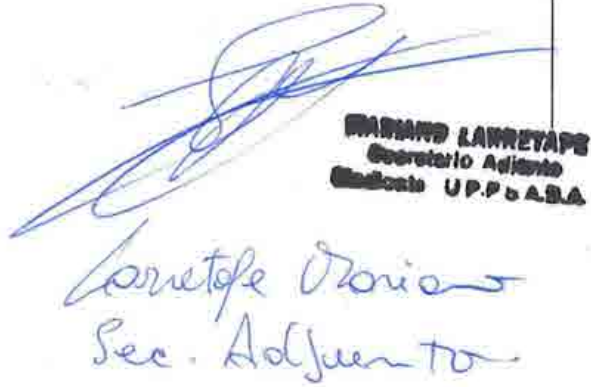 MARIANO LARRETAPE
Secretario Adjunto
Sindicato U.P.P.b A.B.A.
Larretape Mariano
Sec. Adjunto